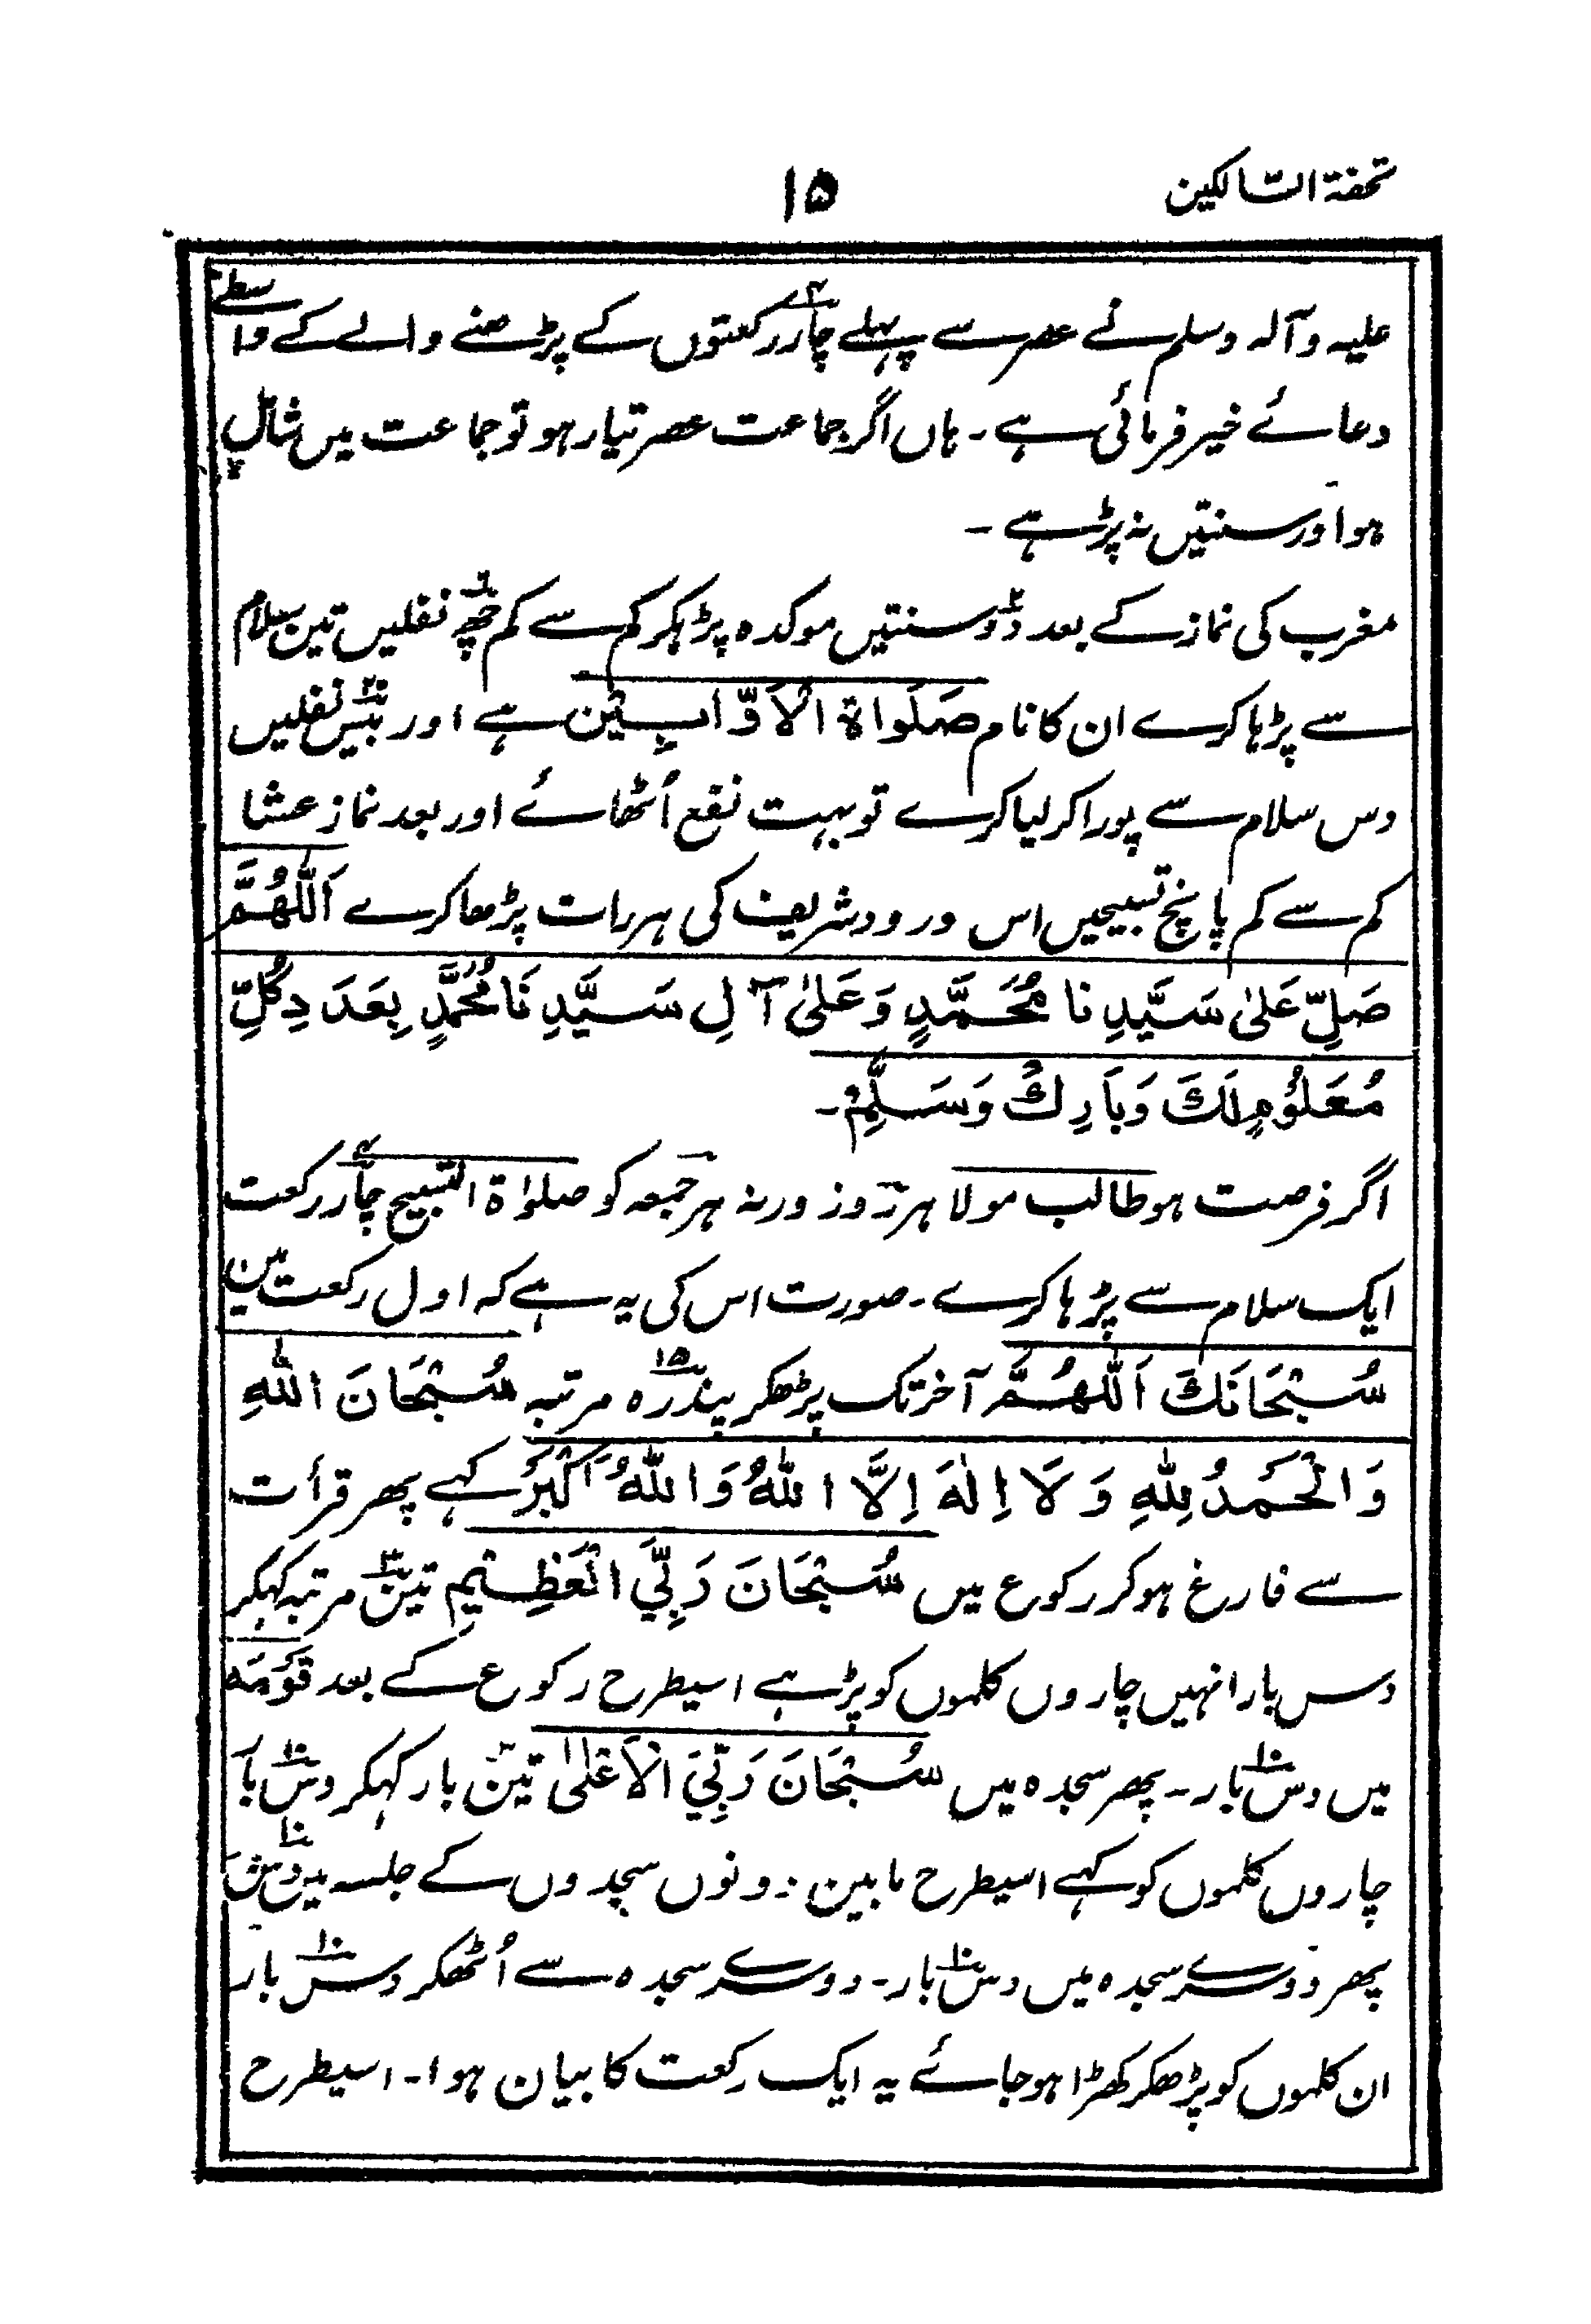 تحفۃ السّالکین
۱۵
علیہ وآلہ وسلم نے عصر سے پہلے چار۴ رکعتوں کے پڑھنے والے کے واسطے
دعائے خیر فرمائی ہے۔ ہاں اگر جماعت عصر تیار ہو تو جماعت میں شامل
ہو اور سنتیں نہ پڑہے ۔
مغرب کی نماز کے بعد دو۲ سنتیں موکدہ پڑہکر کم سے کم چھ۶ نفلیں تین سلام
سے پڑہا کرے ان کا نام صَلَواۃ الْاَوَّابِیْن ہے اور بیس۲۰ نفلیں
دس سلام سے پورا کر لیا کرے تو بہت نفع اُٹھائے اور بعد نماز عشا
کم سے کم پانچ تسبیحیں اس درود شریف کی ہر رات پڑھا کرے اَللّٰھُمَّ
صَلِّ عَلٰی سَیَّدِ نَا مُحَمَّدٍ وَعَلٰی آلِ سَیَّدِ نَا مُحَمَّدٍ بِعَدَدِ کُلِّ
مُعَلُوْمٍ لَکَ وَبَارِکْ وَسَلِّمْ۔
اگر فرصت ہو طالب مولا ہر روز ورنہ ہر جمعہ کو صلوٰۃ التسبیح چار۴ رکعت
ایک سلام سے پڑہا کرے۔ صورت اس کی یہ ہے کہ اول رکعت میں
سُبْحَانَکَ اَللّٰھُمَّ آخر تک پڑھکر پندرہ۱۵ مرتبہ سُبْحَانَ اللّٰہِ
وَالْحَمدُ لِلّٰہِ وَلَا اِلٰہَ اِلَّا اللّٰہُ وَاللّٰہُ اَکْبَرُ کہے پھر قرأت
سے فارغ ہو کر رکوع میں سُبْحَانَ رَبِّیَ الْعَظِیْمِ تین۳ مرتبہ کہکر
دس بار انہیں چاروں کلموں کو پڑہے اسیطرح رکوع کے بعد قَوْمَہ
میں دس۱۰ بار۔ پھر سجدہ میں سُبْحَانَ رَبِّیَ الْاَعْلٰی تین۳ بار کہکر دس۱۰ بار
چاروں کلموں کو کہے اسیطرح مابین دونوں سجدوں کے جلسہ میں دس۱۰
پھر دوسرے سجدہ میں دس۱۰ بار۔ دوسرے سجدہ سے اُٹھکر دس۱۰ بار
ان کلموں کو پڑھکر کھڑا ہو جائے یہ ایک رکعت کا بیان ہوا۔ اسیطرح